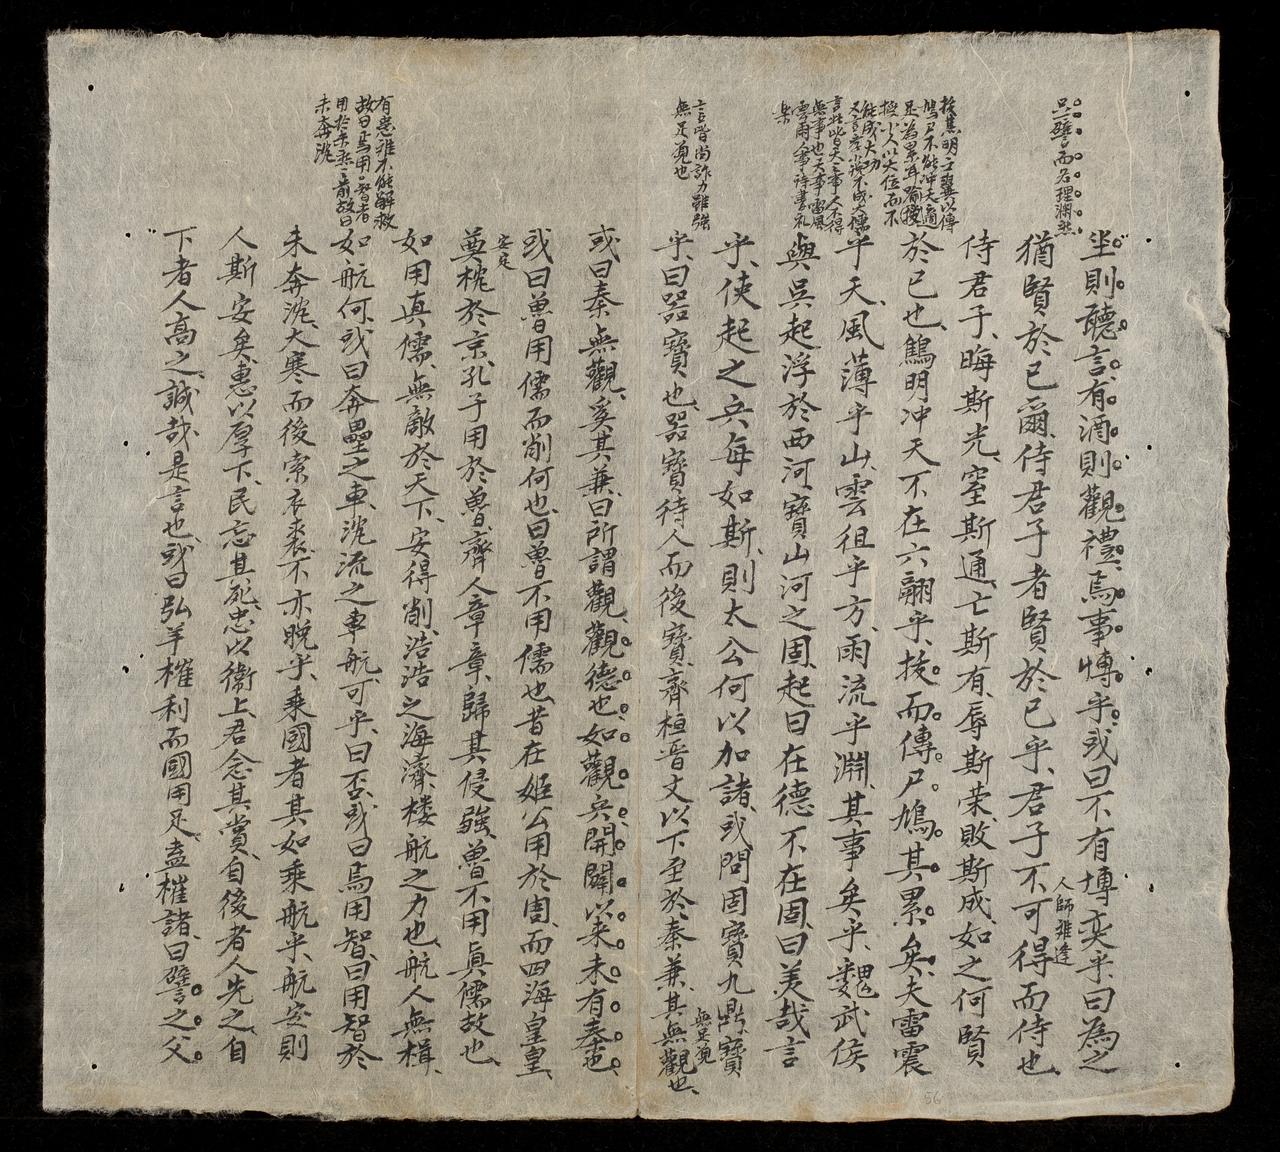 只一譬而名理淵然
坐則聽言有酒則觀禮焉事博乎或曰不有博奕乎曰為之
人師難逢
猶賢於已爾侍君子者賢於已乎君子不可得而侍也
侍君子晦斯光窒斯通亡斯有辱斯荣敗斯成如之何賢
於已也鷦明冲天不在六翮乎拔而傳尸鳩其累矣夫雷震
拔焦明之翼以傳
鳩尸不能冲天適
足為累耳喻授
小人以大位而不
能成大功
乎天風薄乎山雲徂乎方雨流乎淵其事矣乎魏武侯
言此皆天之事人不得
無事也天事雷風
雲雨人事詩書礼
樂
與吳起浮於西河寶山河之固起曰在德不在固曰美哉言
乎使起之兵每如斯則太公何以加諸或問固寶九鼎寶
無足觀
言皆尚詐力雖強
無足觀也
乎曰器寶也器寶待人而後寶齊桓晉文以下至於秦兼其無觀也
或曰秦無觀奚其兼曰所謂觀觀德也如觀兵開闢以来未有秦也
或曰魯用儒而削何也曰魯不用儒也昔在姬公用於周而四海皇皇
安定
奠枕於京孔子用於魯齊人章章歸其侵彊魯不用真儒故也
如用真儒無敵於天下安得削浩浩之海濟楼航之力也航人無楫
如航何或曰奔壘之車沈流之車航可乎曰否或曰焉用智曰用智於
有患雖不能解救
故曰焉用智者
用於未然之前故曰
未奔沈
未奔沈大寒而後索衣裘不亦晚乎乘國者其如乘航乎航安則
人斯安矣惠以厚下民忘其死忠以衛上君念其賞自後者人先之自
下者人高之誠哉是言也或曰弘羊榷利而國用足盍榷諸曰譬之父
56